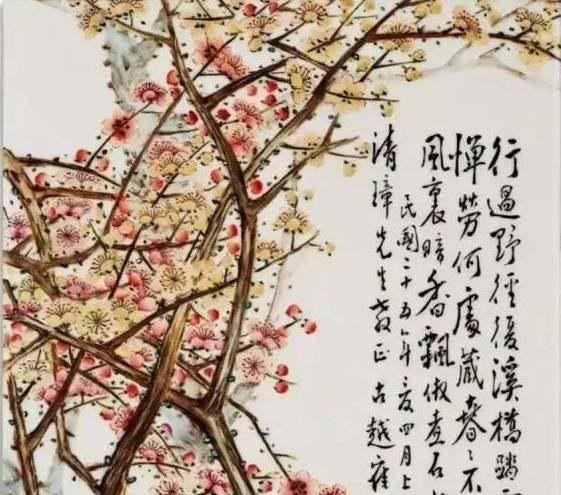 行過野徑復溪橋踏
憚勞何處藏春〻不
風裏暗香飄俶查石
民國二十五年亥四月上
清璋先生教正古越